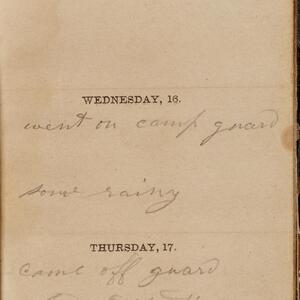 WEDNESDAY, 16.
went on camp guard
some rainy
THURSDAY, 17.
came off guard